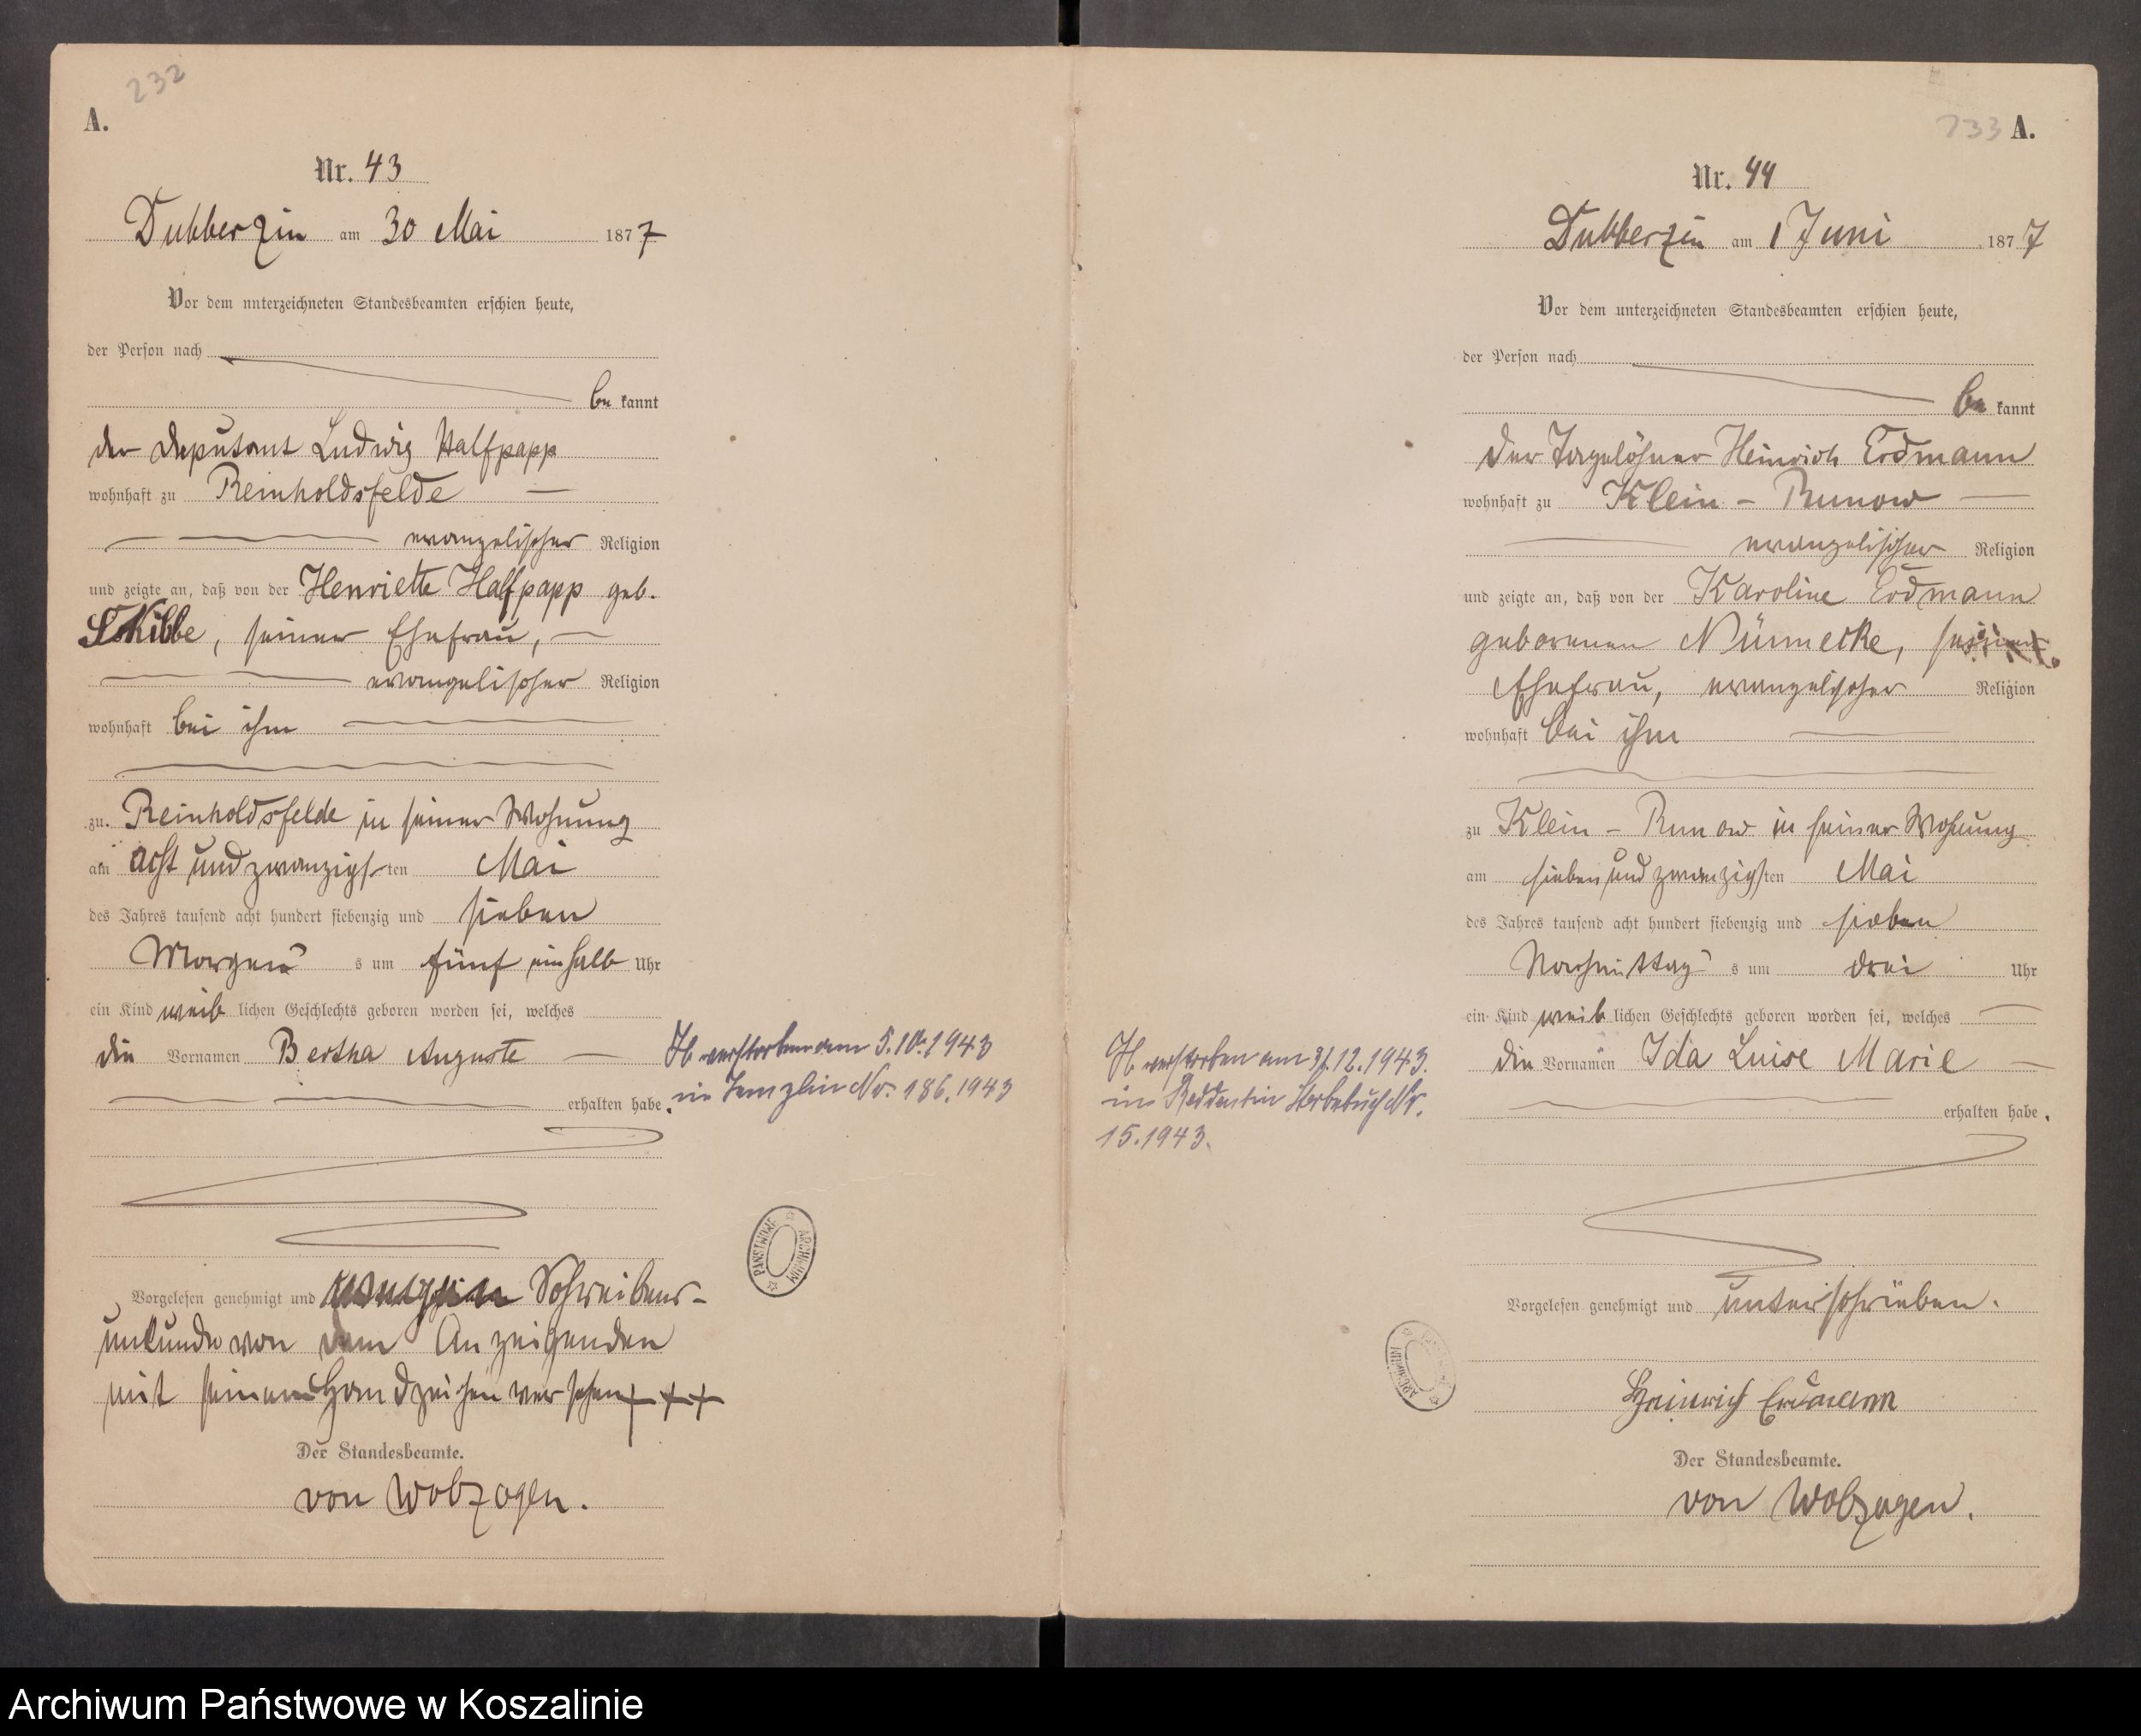 232
A.
Nr. 43
Dubberzin am 30 Mai 1877
Vor dem unterzeichneten Standesbeamten erschien heute,
der Person nach
be kannt
der Deputant Ludwig Halfpapp
wohnhaft zu Reinholdsfelde
evangelischer Religion
und zeigte an, daß von der Henriette Halfpapp geb.
Skibbe, seiner Ehefrau,
evangelischer Religion
wohnhaft bei ihm
zu Reinholdsfelde in seiner Wohnung
am acht und zwanzigsten Mai
des Jahres tausend acht hundert siebenzig und sieben
Morgens um fünf ein halb Uhr
ein Kind weiblichen Geschlechts geboren worden sei, welches
die Vornamen Bertha Auguste
erhalten habe.
verstorben am 5.10.1943
in Templin Nr. 186.1943
PAŃSTWOWE ARCHIWUM
Vorgelesen genehmigt und Schreibens-
unkunde von dem Anzeigenden
mit seinem Handzeichen versehen +++
Der Standesbeamte.
von Wolzogen.
233 A.
Nr. 44
Dubberzin am 1 Juni 1877
Vor dem unterzeichneten Standesbeamten erschien heute,
der Person nach
be kannt
der Tagelöhner Heinrich Erdmann
wohnhaft zu Klein-Runow
evangelischer Religion
und zeigte an, daß von der Karoline Erdmann
geborenen Nümecke, seiner
Ehefrau, evangelischer Religion
wohnhaft bei ihm
zu Klein-Runow in seiner Wohnung
am sieben und zwanzigsten Mai
des Jahres tausend acht hundert siebenzig und sieben
Nachmittags um drei Uhr
ein Kind weiblichen Geschlechts geboren worden sei, welches
die Vornamen Ida Luise Marie
erhalten habe.
verstorben am 31.12.1943.
in Reddentin Sterbebuch Nr.
15.1943.
Vorgelesen genehmigt und unterschrieben.
Heinrich Erdmann
Der Standesbeamte.
von Wolzogen.
Archiwum Państwowe w Koszalinie